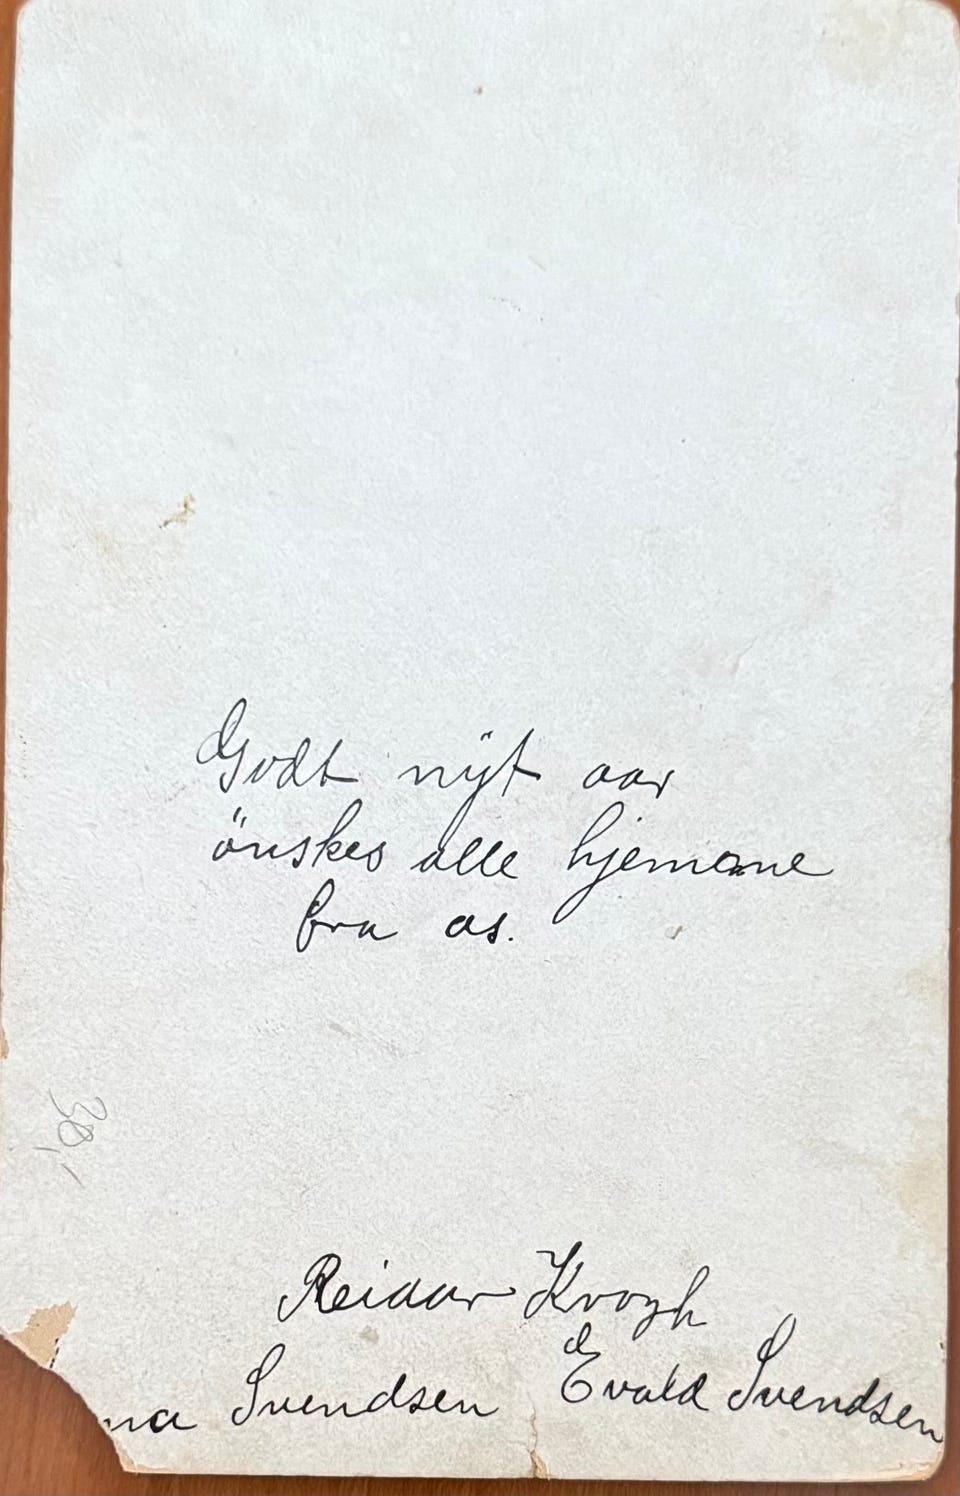 Godt nÿt aar
önskes alle hjemene
fra os.
30,-
Reidar Krogh
na Svendsen Evald Svendsen